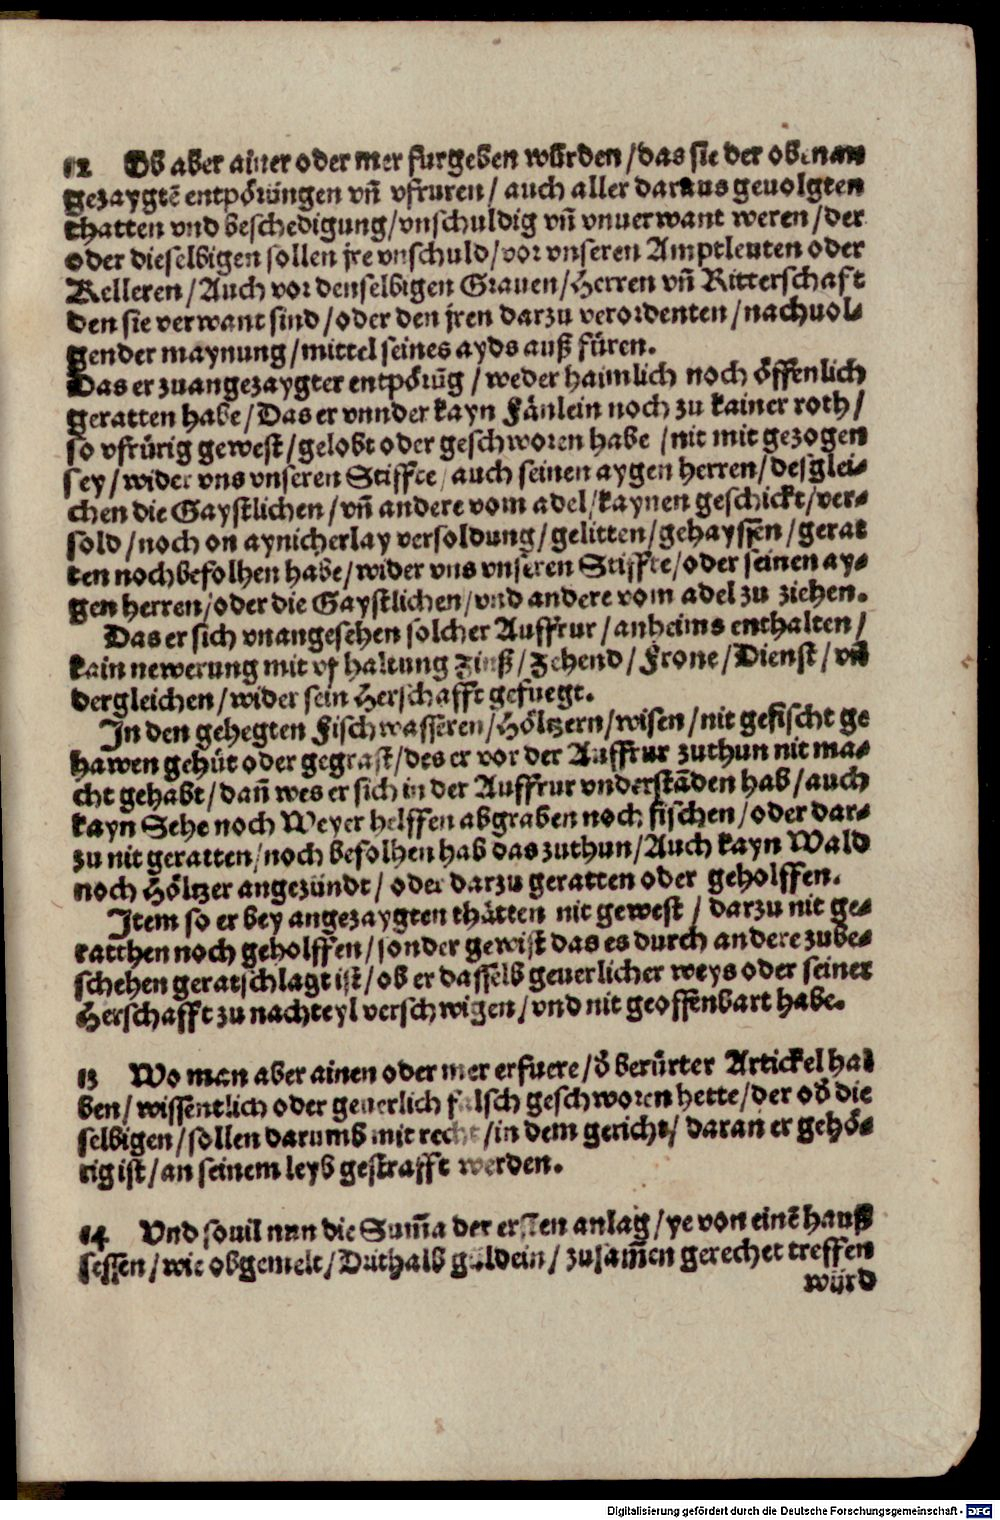 12 Ob aber ainer oder mer furgeben würden / das sie der obenan
gezaygtē entpörungen vñ vfruren / auch aller daraus geuolgten
thatten vnd beschedigung / vnschuldig vñ vnuerwant weren / der
oder dieselbigen sollen jre vnschuld / vor vnseren Amptleuten oder
Kelleren / Auch vor denselbigen Grauen / Herren vñ Ritterschafft
den sie verwant sind / oder den jren darzu verordenten / nachuol-
gender maynung / mittel seines ayds auß füren.
Das er zuangezaygter entpörūg / weder haimlich noch öffenlich
geratten habe / Das er vnnder kayn Fänlein noch zu kainer roth /
so vfrürig gewest / gelobt oder geschworen habe / nit mit gezogen
sey / wider vns vnseren Stiffte / auch seinen aygen herren / desglei-
chen die Gaystlichen / vñ andere vom adel / kaynen geschickt / ver-
sold / noch on aynicherlay versoldung / gelitten / gehayssen / gerat
ten noch befolhen habe / wider vns vnseren Stiffte / oder seinen ay-
gen herren / oder die Gaystlichen / vnd andere vom adel zu ziehen.
Das er sich vnangesehen solcher Auffrur / anheims enthalten /
kain newerung mit vf haltung Zinß / Zehend / Frone / Dienst / vñ
dergleichen / wider sein Herschafft gefuegt.
In den gehegten Fischwasseren / Höltzern / wisen / nit gefischt ge
hawen gehüt oder gegrast / des er vor der Auffrur zuthun nit ma-
cht gehabt / dañ wes er sich in der Auffrur vnderstāden hab / auch
kayn Sehe noch Weyer helffen abgraben noch fischen / oder dar-
zu nit geratten / noch befolhen hab das zuthun / Auch kayn Wald
noch Höltzer angezündt / oder darzu geratten oder geholffen.
Item so er bey angezaygten thätten nit gewest / darzu nit ge-
ratthen noch geholffen / sonder gewist das es durch andere zube-
schehen geratschlagt ist / ob er dasselb geuerlicher weys oder seiner
Herschafft zu nachteyl verschwigen / vnd nit geoffenbart habe.
13 Wo man aber ainen oder mer erfuere / d̄ berürter Artickel hal
ben / wissentlich oder geuerlich falsch geschworen hette / der od̄ die
selbigen / sollen darumb mit recht / in dem gericht / daran er gehö-
rig ist / an seinem leyb gestrafft werden.
14 Vnd souil nun die Sum̄a der ersten anlag / ye von einē hauß
sessen / wie obgemelt / Dúthalb guldein / zusam̄en gerechet treffen
würd
Digitalisierung gefördert durch die Deutsche Forschungsgemeinschaft - DFG